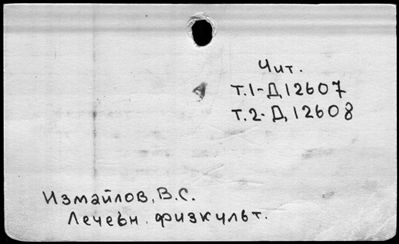 Чит.
Т.1-Д12607
Т.2-Д12608
Измайлов, В.С.
Лечебн. физкульт.